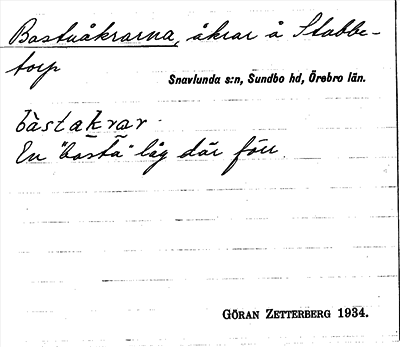 Bastuåkrarna, åkrar å Stabbe-
torp
Snavlunda s:n, Sundbo hd, Örebro län.
bàstak̲ra̲r.
En "basta" låg där förr.
GÖRAN ZETTERBERG 1934.